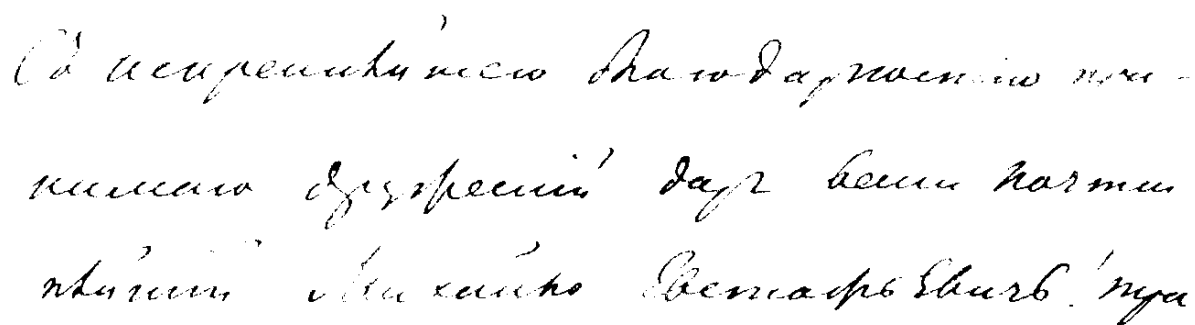 Съ искреннѣйшею благодарностію при-
нимаю дружескій даръ вашъ почтен
нѣйшій Михайло Евстафьевичъ! при